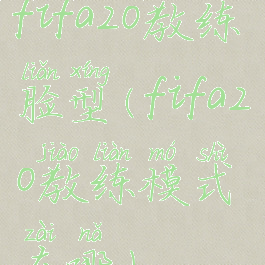 fifa20教练
liǎn xíng
脸型(fifa2
jiào liàn mó shì
0教练模式
zài nǎ
在哪)